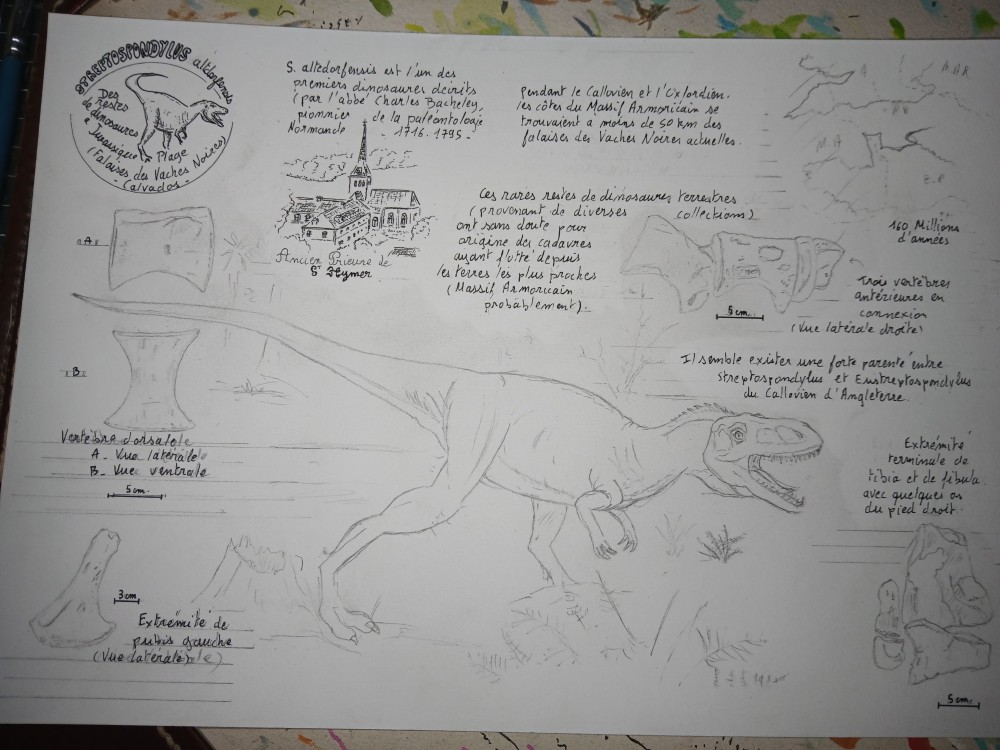 STREPTOSPONDYLUS altdorfensis
Des
restes
de dinosaures
Jurassique
Plage
(Falaises des Vaches Noires)
- Calvados -
S. altedorfensis est l'un des
premiers dinosaures décrits
(par l'abbé Charles Bacheley,
pionnier de la paléontologie
Normande - 1716. 1795 -
Ancien Prieuré de
St Hymer
pendant le Callovien et l'Oxfordien.
les côtes du Massif Armoricain se
trouvaient à moins de 50 km des
falaises des Vaches Noires actuelles.
M.A
160 Millions
d'années
Ces rares restes de dinosaures terrestres
(provenant de diverses collections)
ont sans doute pour
origine des cadavres
ayant flotté depuis
les terres les plus proches
(Massif Armoricain
probablement).
5 cm.
Trois vertèbres
antérieures en
connexion
(Vue latérale droite)
Il semble exister une forte parenté entre
Streptospondylus et Eustreptospondylus
du Callovien d'Angleterre.
A
B
Vertèbre dorsale
A - Vue latérale
B - Vue ventrale
5 cm.
3 cm
Extrémité de
pubis gauche
(Vue latérale)
Extrémité
terminale de
tibia et de fibula
avec quelques os
du pied droit.
5 cm.